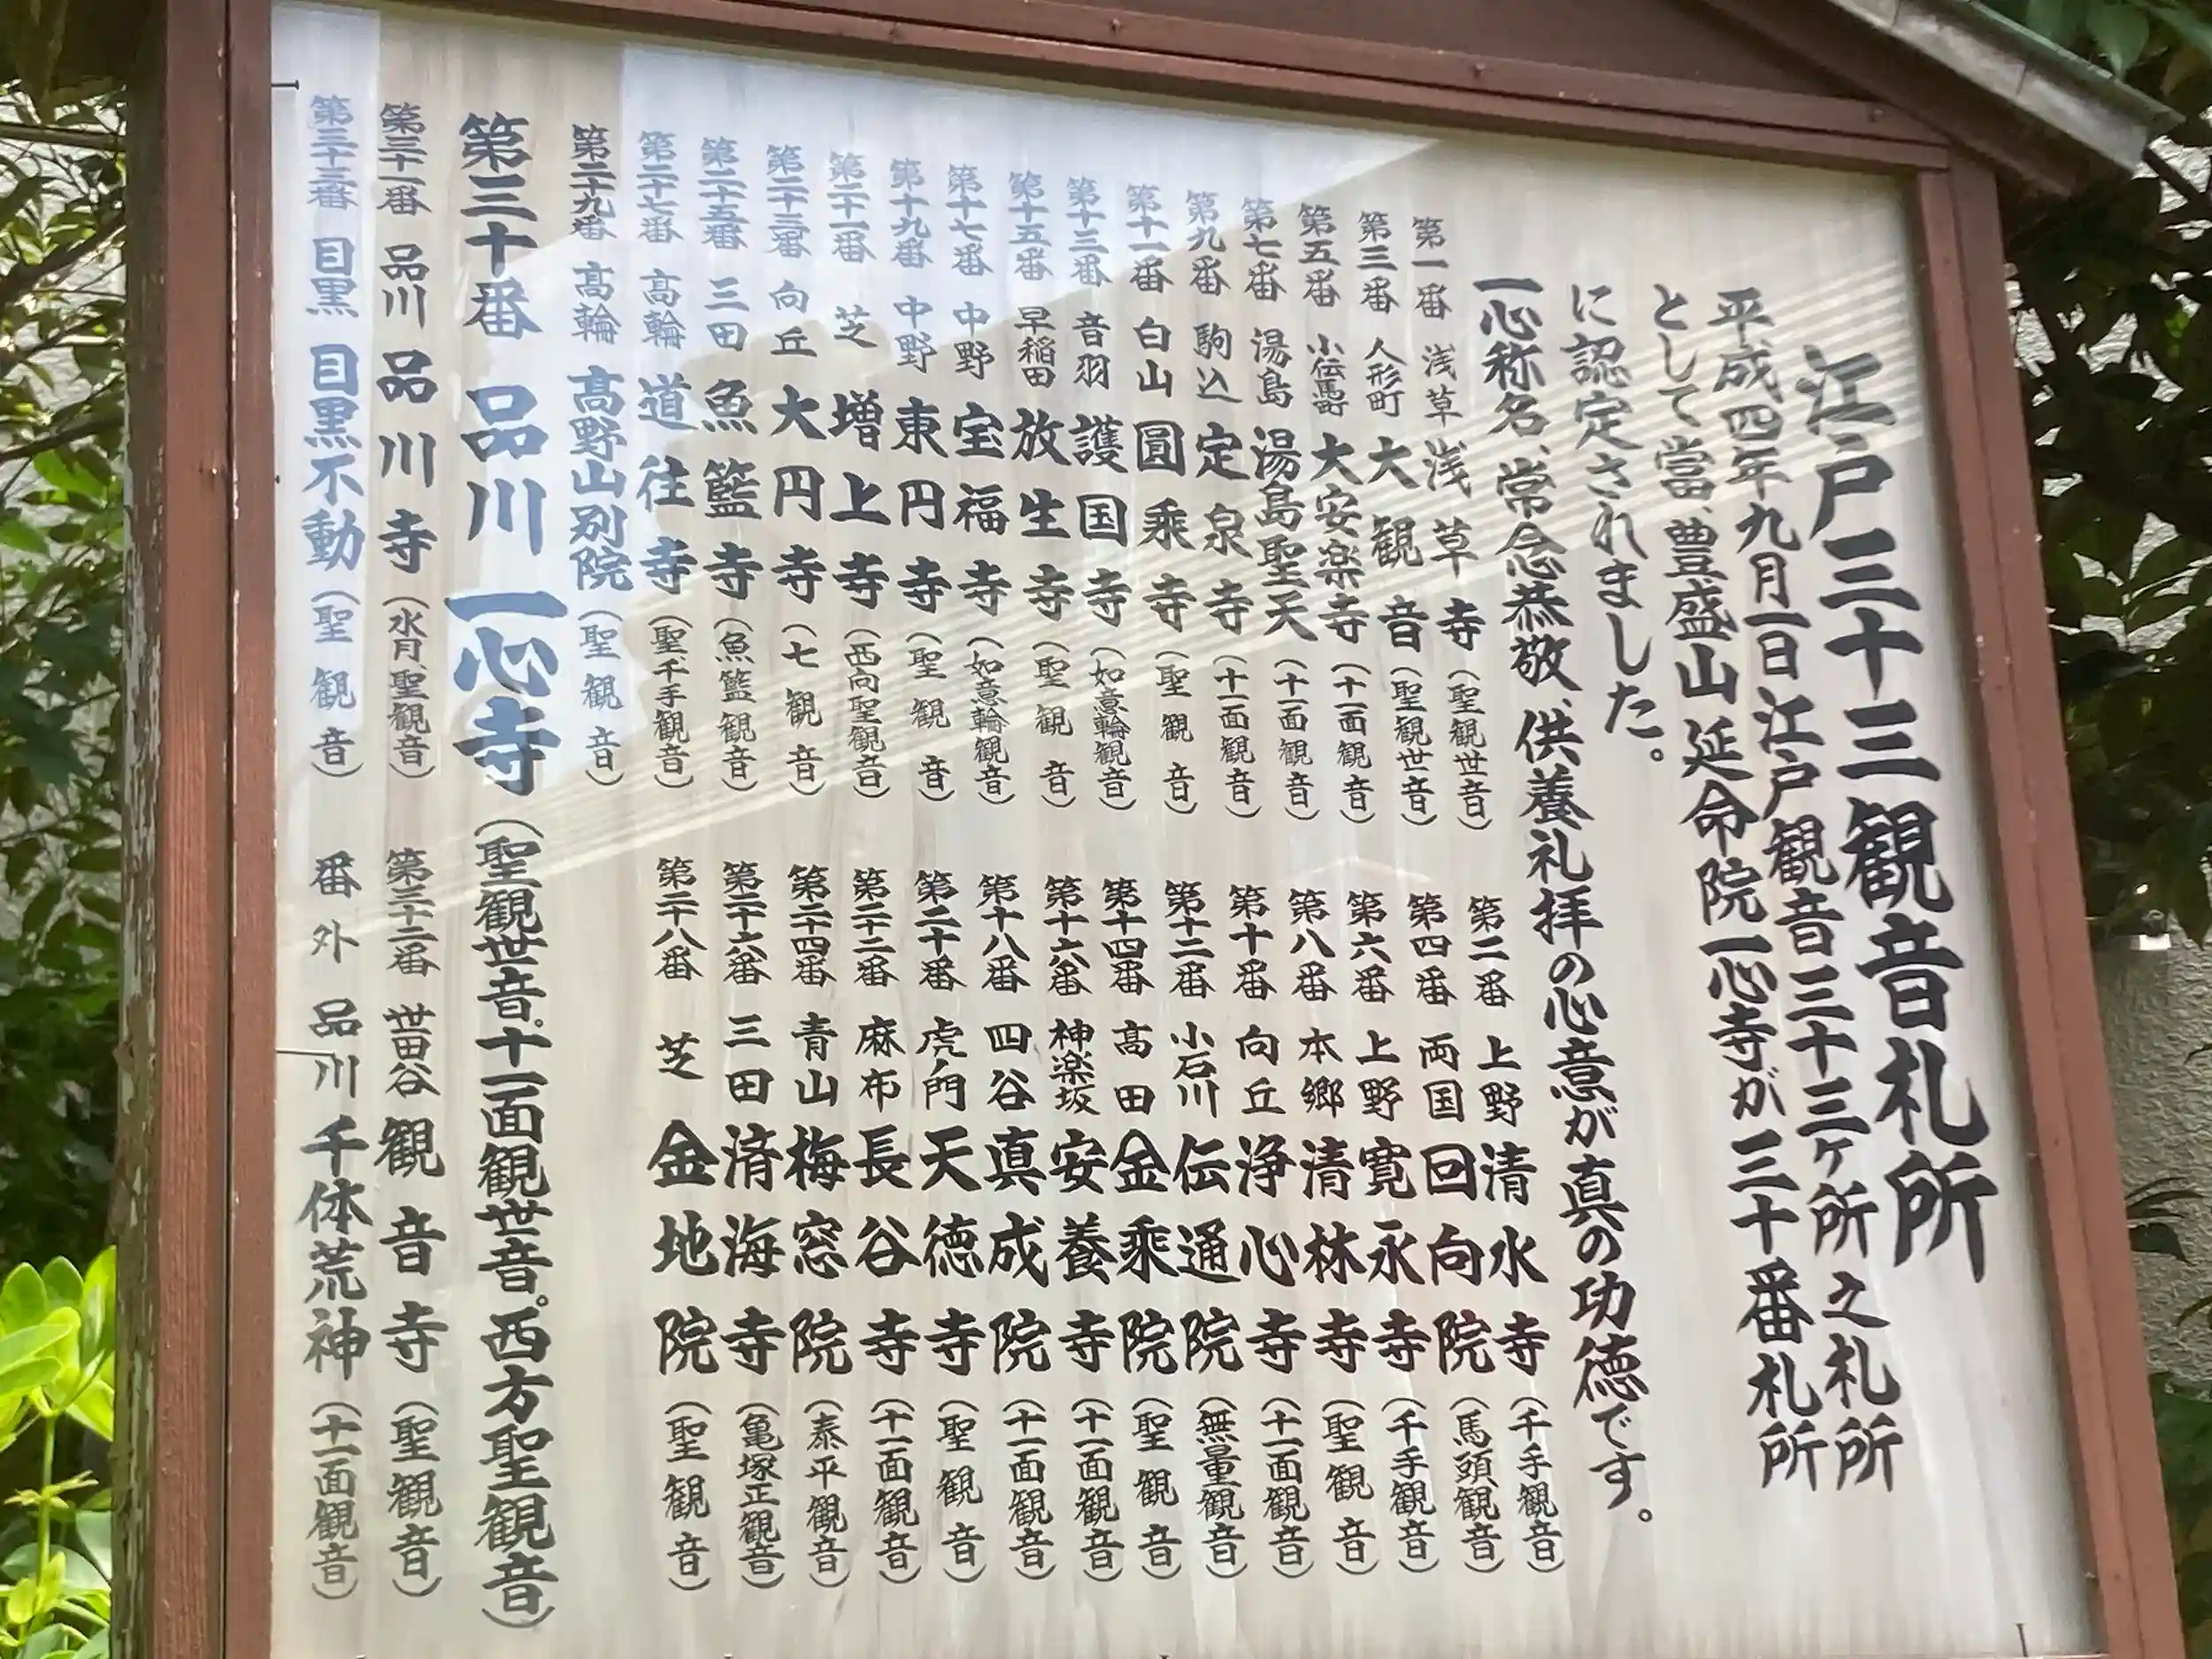 江戸三十三観音札所
平成四年九月一日江戸観音三十三ヶ所之札所
として當、豊盛山延命院一心寺が三十番札所
に認定されました。
一心称名、常念恭敬、供養礼拝の心意が真の功徳です。
第一番 浅草 浅草寺（聖観世音）
第二番 上野 清水寺（千手観音）
第三番 人形町 大観音（聖観世音）
第四番 両国 回向院（馬頭観音）
第五番 小伝馬町 大安楽寺（十一面観音）
第六番 上野 寛永寺（千手観音）
第七番 湯島 湯島聖天（十一面観音）
第八番 本郷 清林寺（聖観音）
第九番 駒込 定泉寺（十一面観音）
第十番 向丘 浄心寺（十一面観音）
第十一番 白山 圓乗寺（聖観音）
第十二番 小石川 伝通院（無量観音）
第十三番 音羽 護国寺（如意輪観音）
第十四番 高田 金乗院（聖観音）
第十五番 早稲田 放生寺（聖観音）
第十六番 神楽坂 安養寺（十一面観音）
第十七番 中野 宝福寺（如意輪観音）
第十八番 四谷 真成院（十一面観音）
第十九番 中野 東円寺（聖観音）
第二十番 虎ノ門 天徳寺（聖観音）
第二十一番 芝 増上寺（西向聖観音）
第二十二番 麻布 長谷寺（十一面観音）
第二十三番 向丘 大円寺（七観音）
第二十四番 青山 梅窓院（泰平観音）
第二十五番 三田 魚籃寺（魚籃観音）
第二十六番 三田 済海寺（亀塚正観音）
第二十七番 高輪 道往寺（聖千手観音）
第二十八番 芝 金地院（聖観音）
第二十九番 高輪 高野山別院（聖観音）
第三十番 品川 一心寺（聖観世音。十一面観世音。西方聖観音）
第三十一番 品川 品川寺（水月、聖観音）
第三十二番 世田谷 観音寺（聖観音）
第三十三番 目黒 目黒不動（聖観音）
番外 品川 千体荒神（十一面観音）